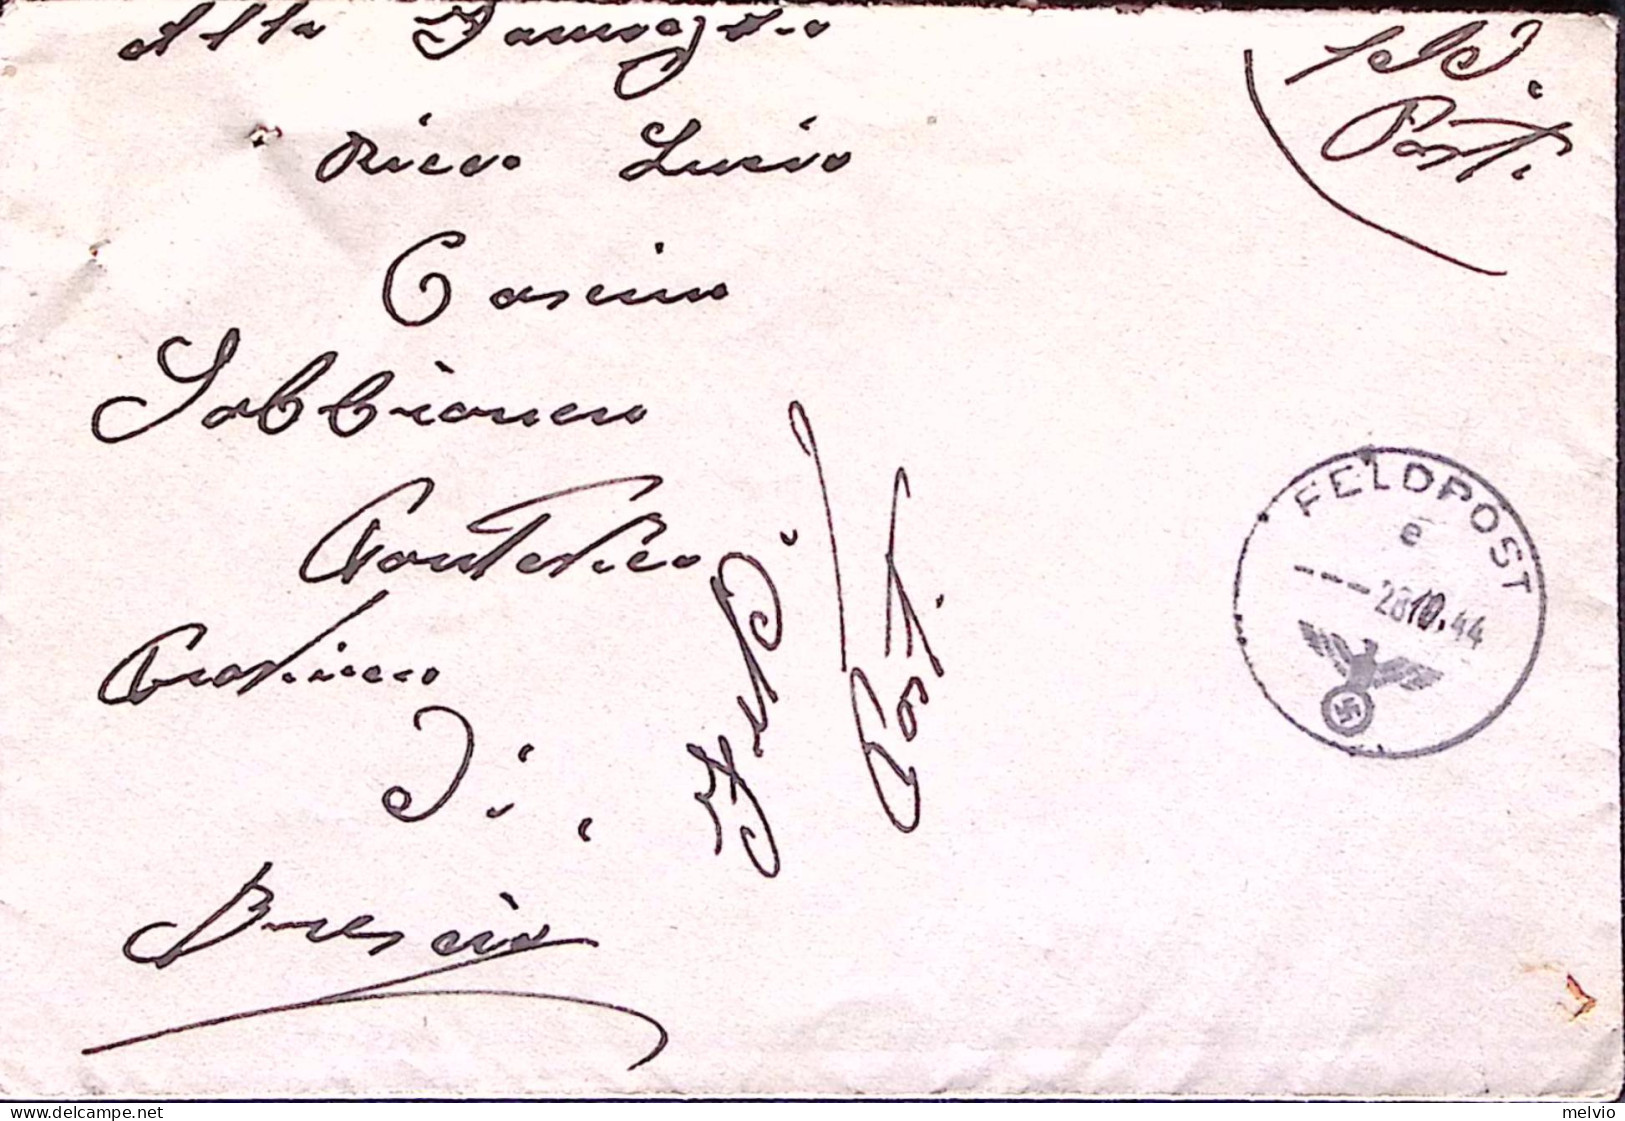 Alla Famiglia
Ricca Lucio
Casina
Sabbioncu
Di.
Brescia
Feld.
Post.
Feld.
Post.
FELDPOST
e
---28.10.44
www.delcampe.net
melvio